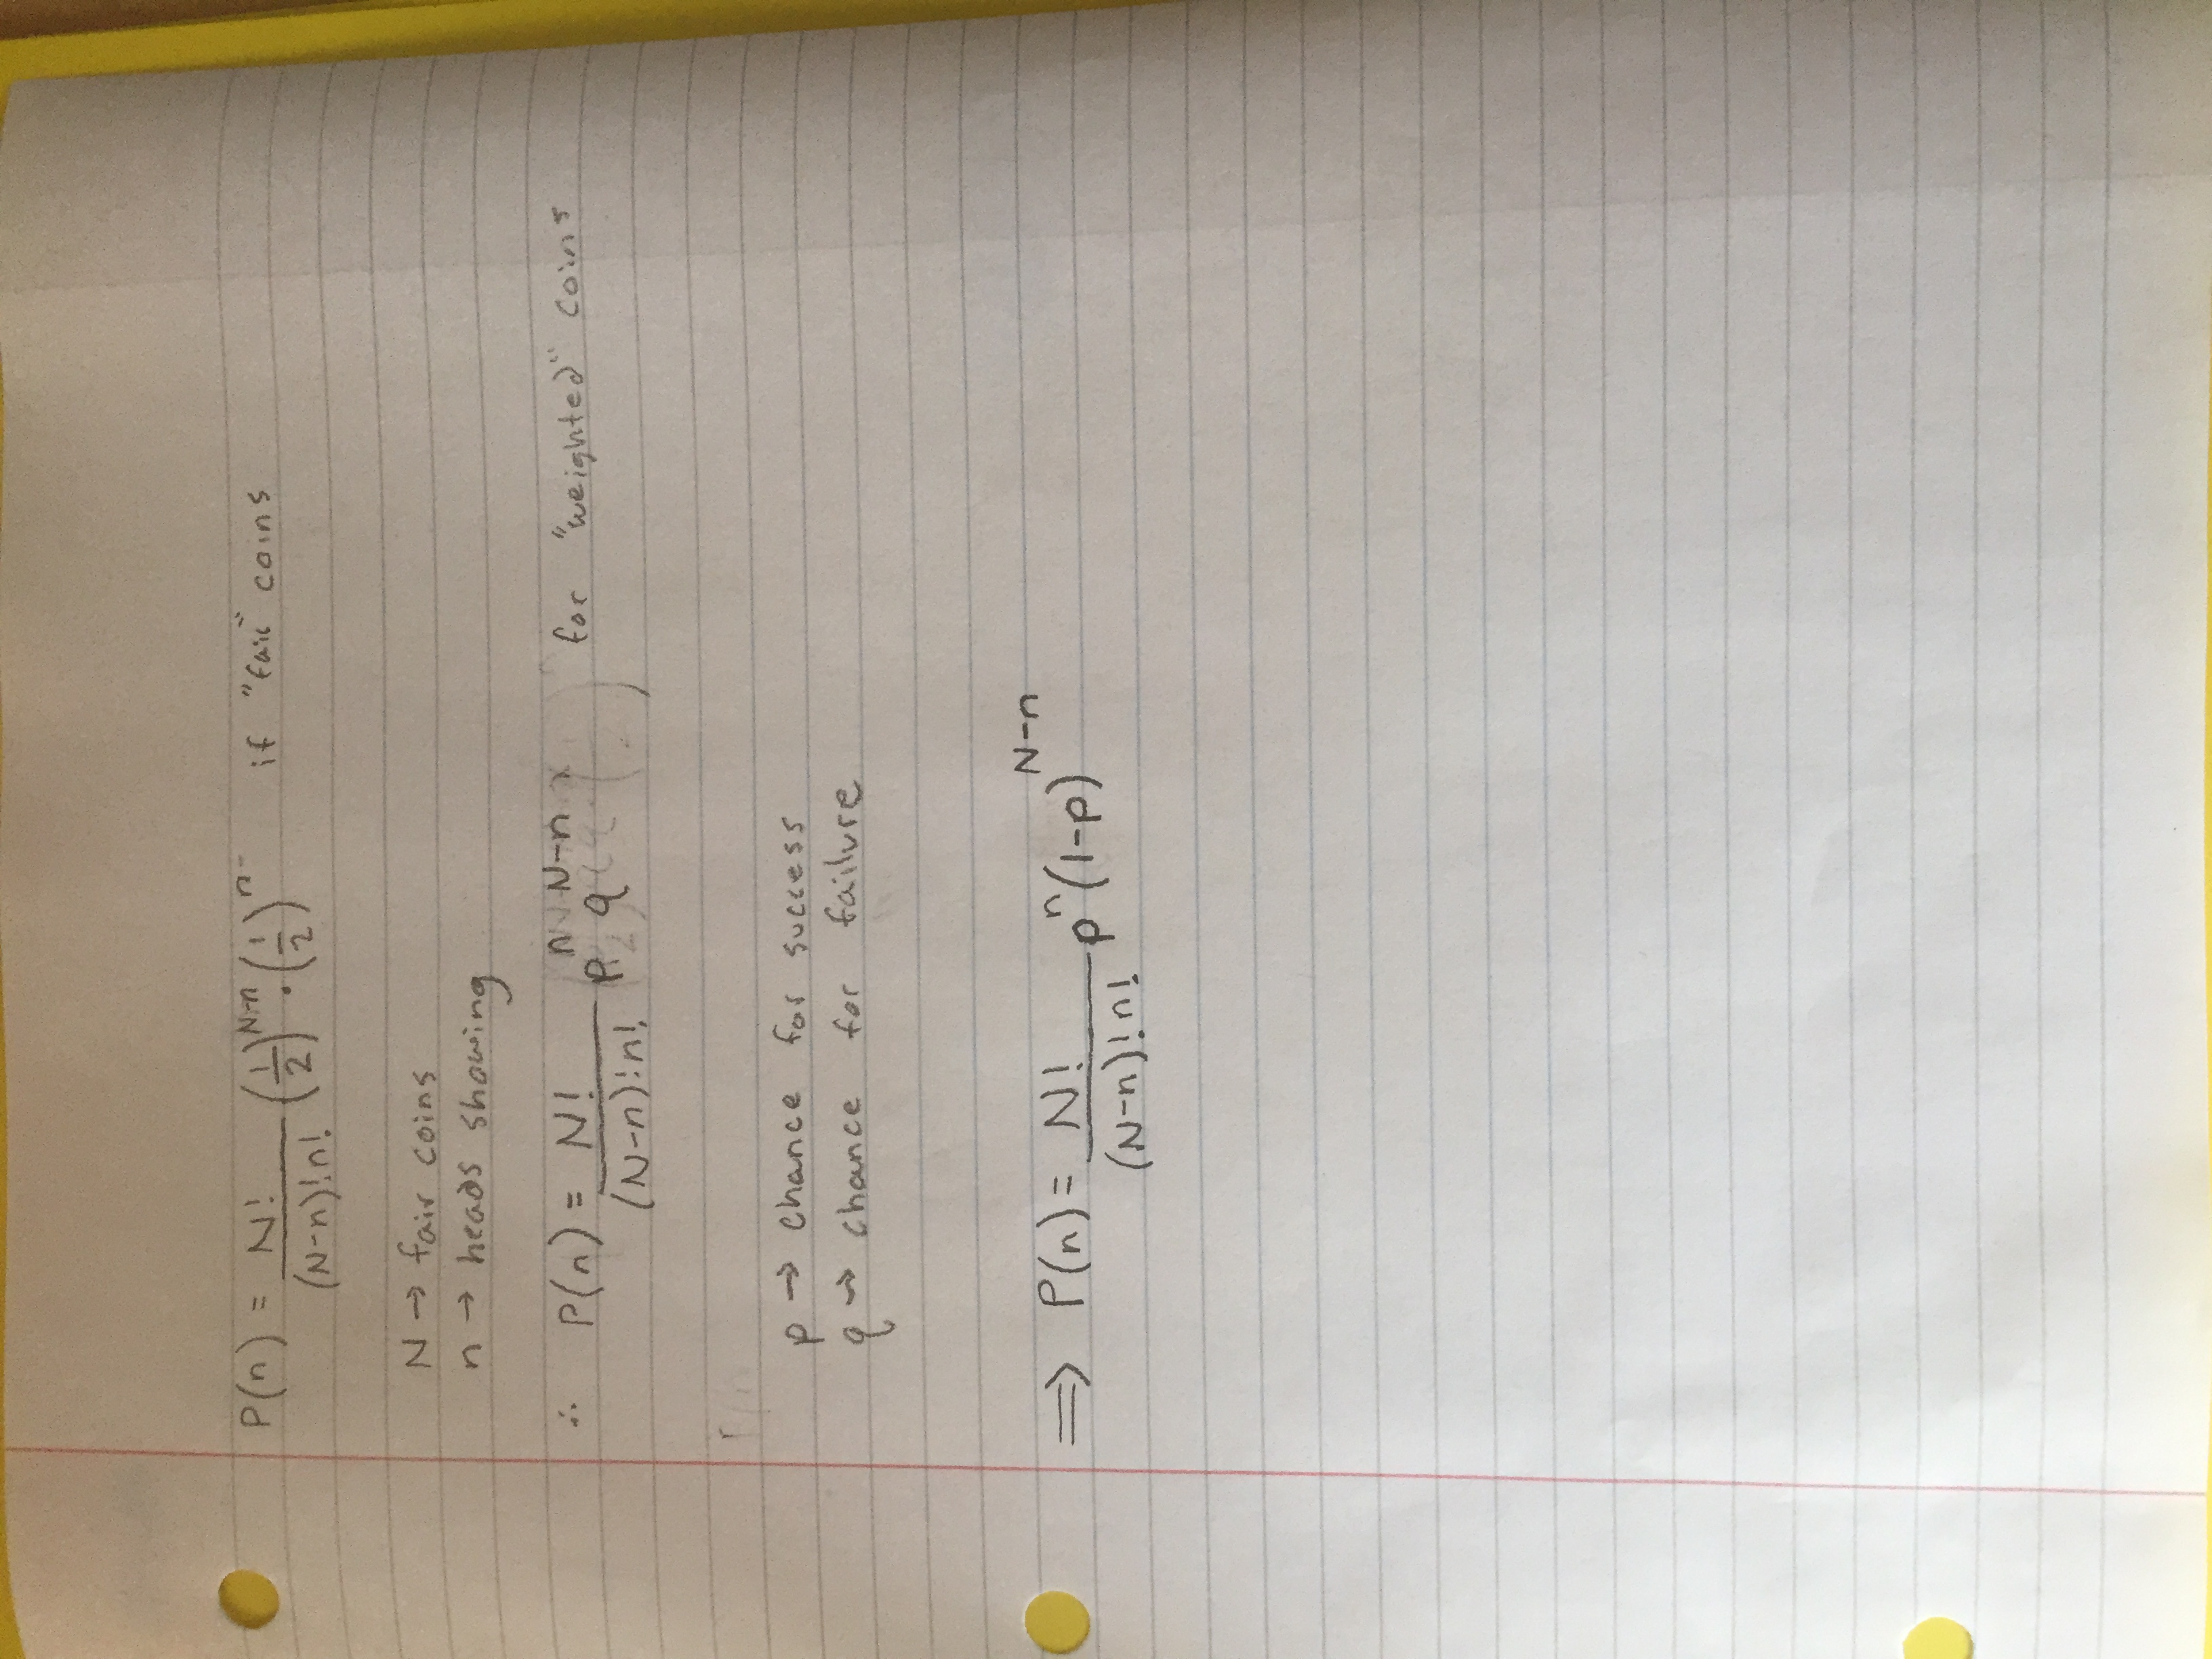 P(n) = N!/((N-n)!n!) (1/2)^(N-n) · (1/2)^n if "fair" coins
N → fair coins
n → heads showing
∴ P(n) = N!/((N-n)!n!) p^n q^(N-n) for "weighted" coins
p → chance for success
q → chance for failure
⟹ P(n) = N!/((N-n)!n!) p^n (1-p)^(N-n)